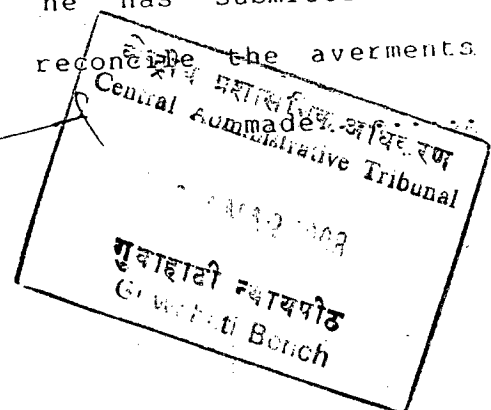 he has
reconcile the averments
made
केन्द्रीय प्रशासनिक अधिकरण
Central Administrative Tribunal
गुवाहाटी न्यायपीठ
Guwahati Bench